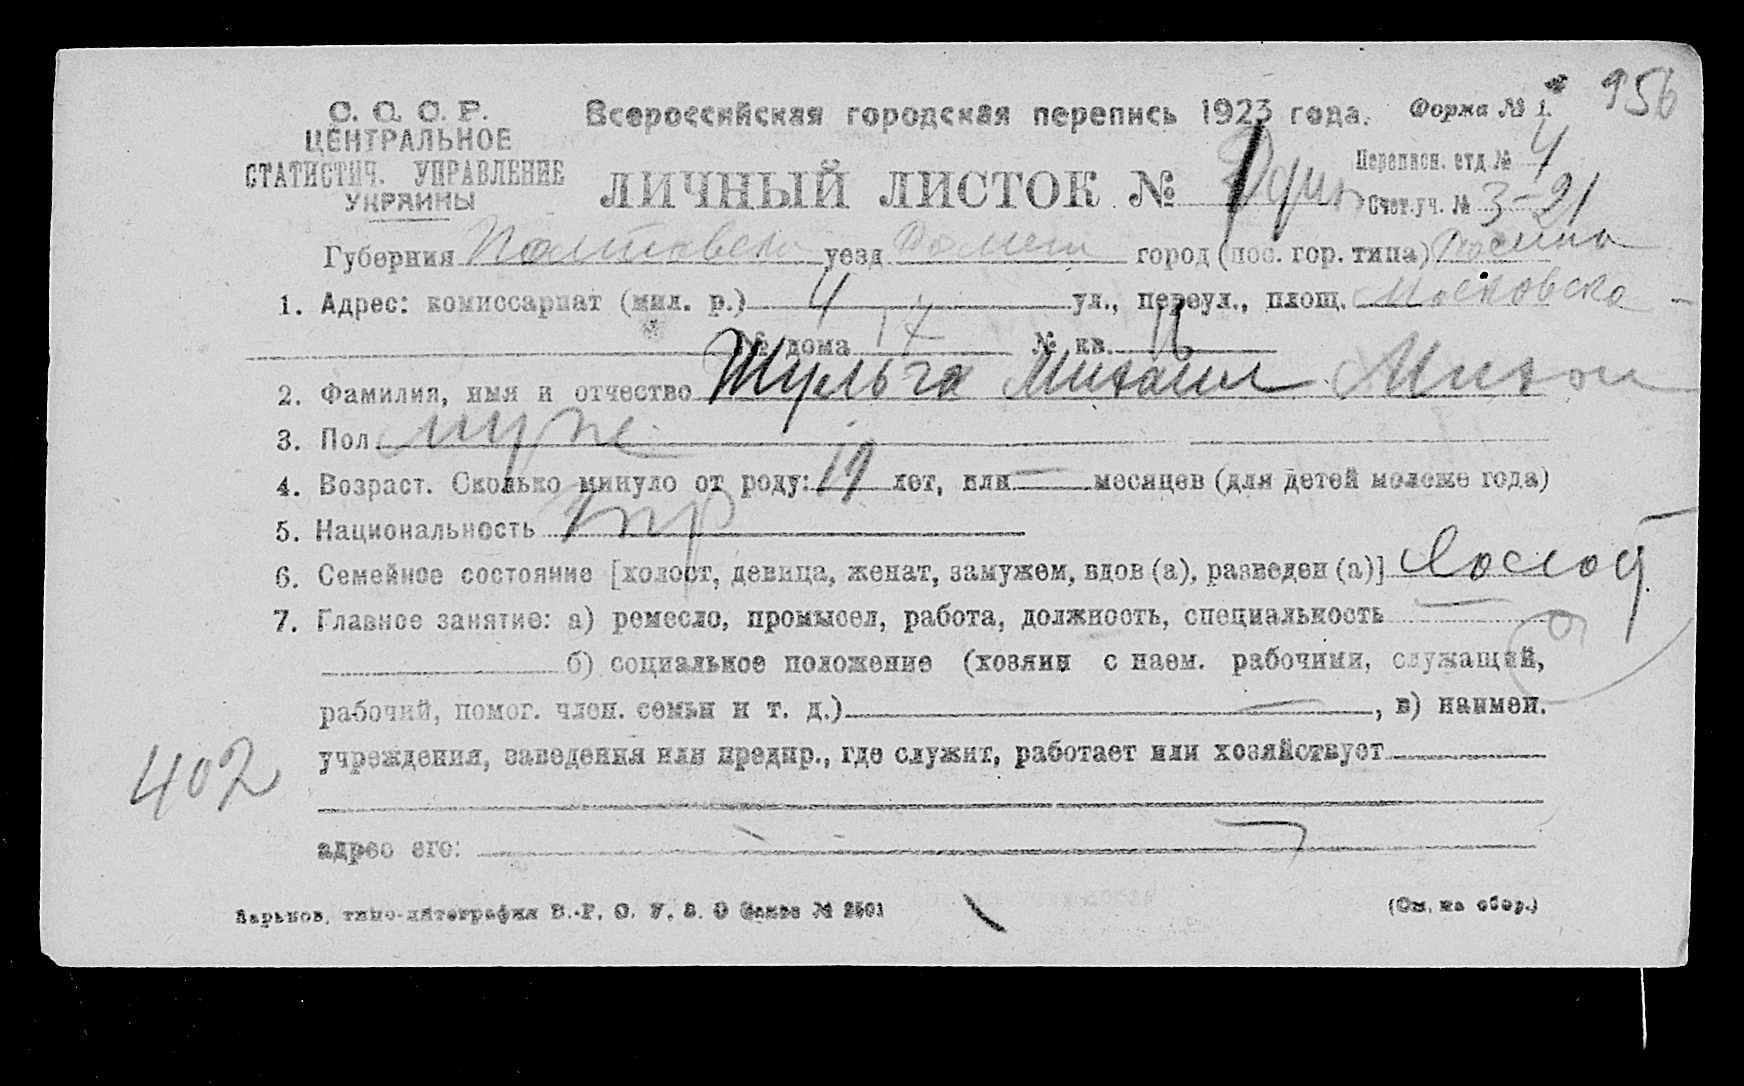 956
С. С. С. Р.
ЦЕНТРАЛЬНОЕ
СТАТИСТИЧ. УПРАВЛЕНИЕ
УКРАИНЫ
Всероссийская городская перепись 1923 года.
Форма № 1.
ЛИЧНЫЙ ЛИСТОК №
Переписн. отд № 4
Счет.уч. № 3-21
Губерния Полтавск уезд Ромен город (пос. гор. типа)
1. Адрес: комиссариат (мил. р.) 4 ул., переул., площ. Московска
№ дома 17 № кв.
2. Фамилия, имя и отчество Шульга Михаил Михаи
3. Пол муж
4. Возраст. Сколько минуло от роду: 19 лет, или — месяцев (для детей моложе года)
5. Национальность Укр
6. Семейное состояние [холост, девица, женат, замужем, вдов (а), разведен (а)] Холост
7. Главное занятие: а) ремесло, промысел, работа, должность, специальность —
б) социальное положение (хозяин с наем. рабочими, служащий,
рабочий, помог. член. семьи и т. д.) —, в) наимен.
учреждения, заведения или предпр., где служит, работает или хозяйствует
402
адрес его:
Харьков, типо-литография В.-Р. О. У. В. О Заказ № 2501
(См. на обор.)